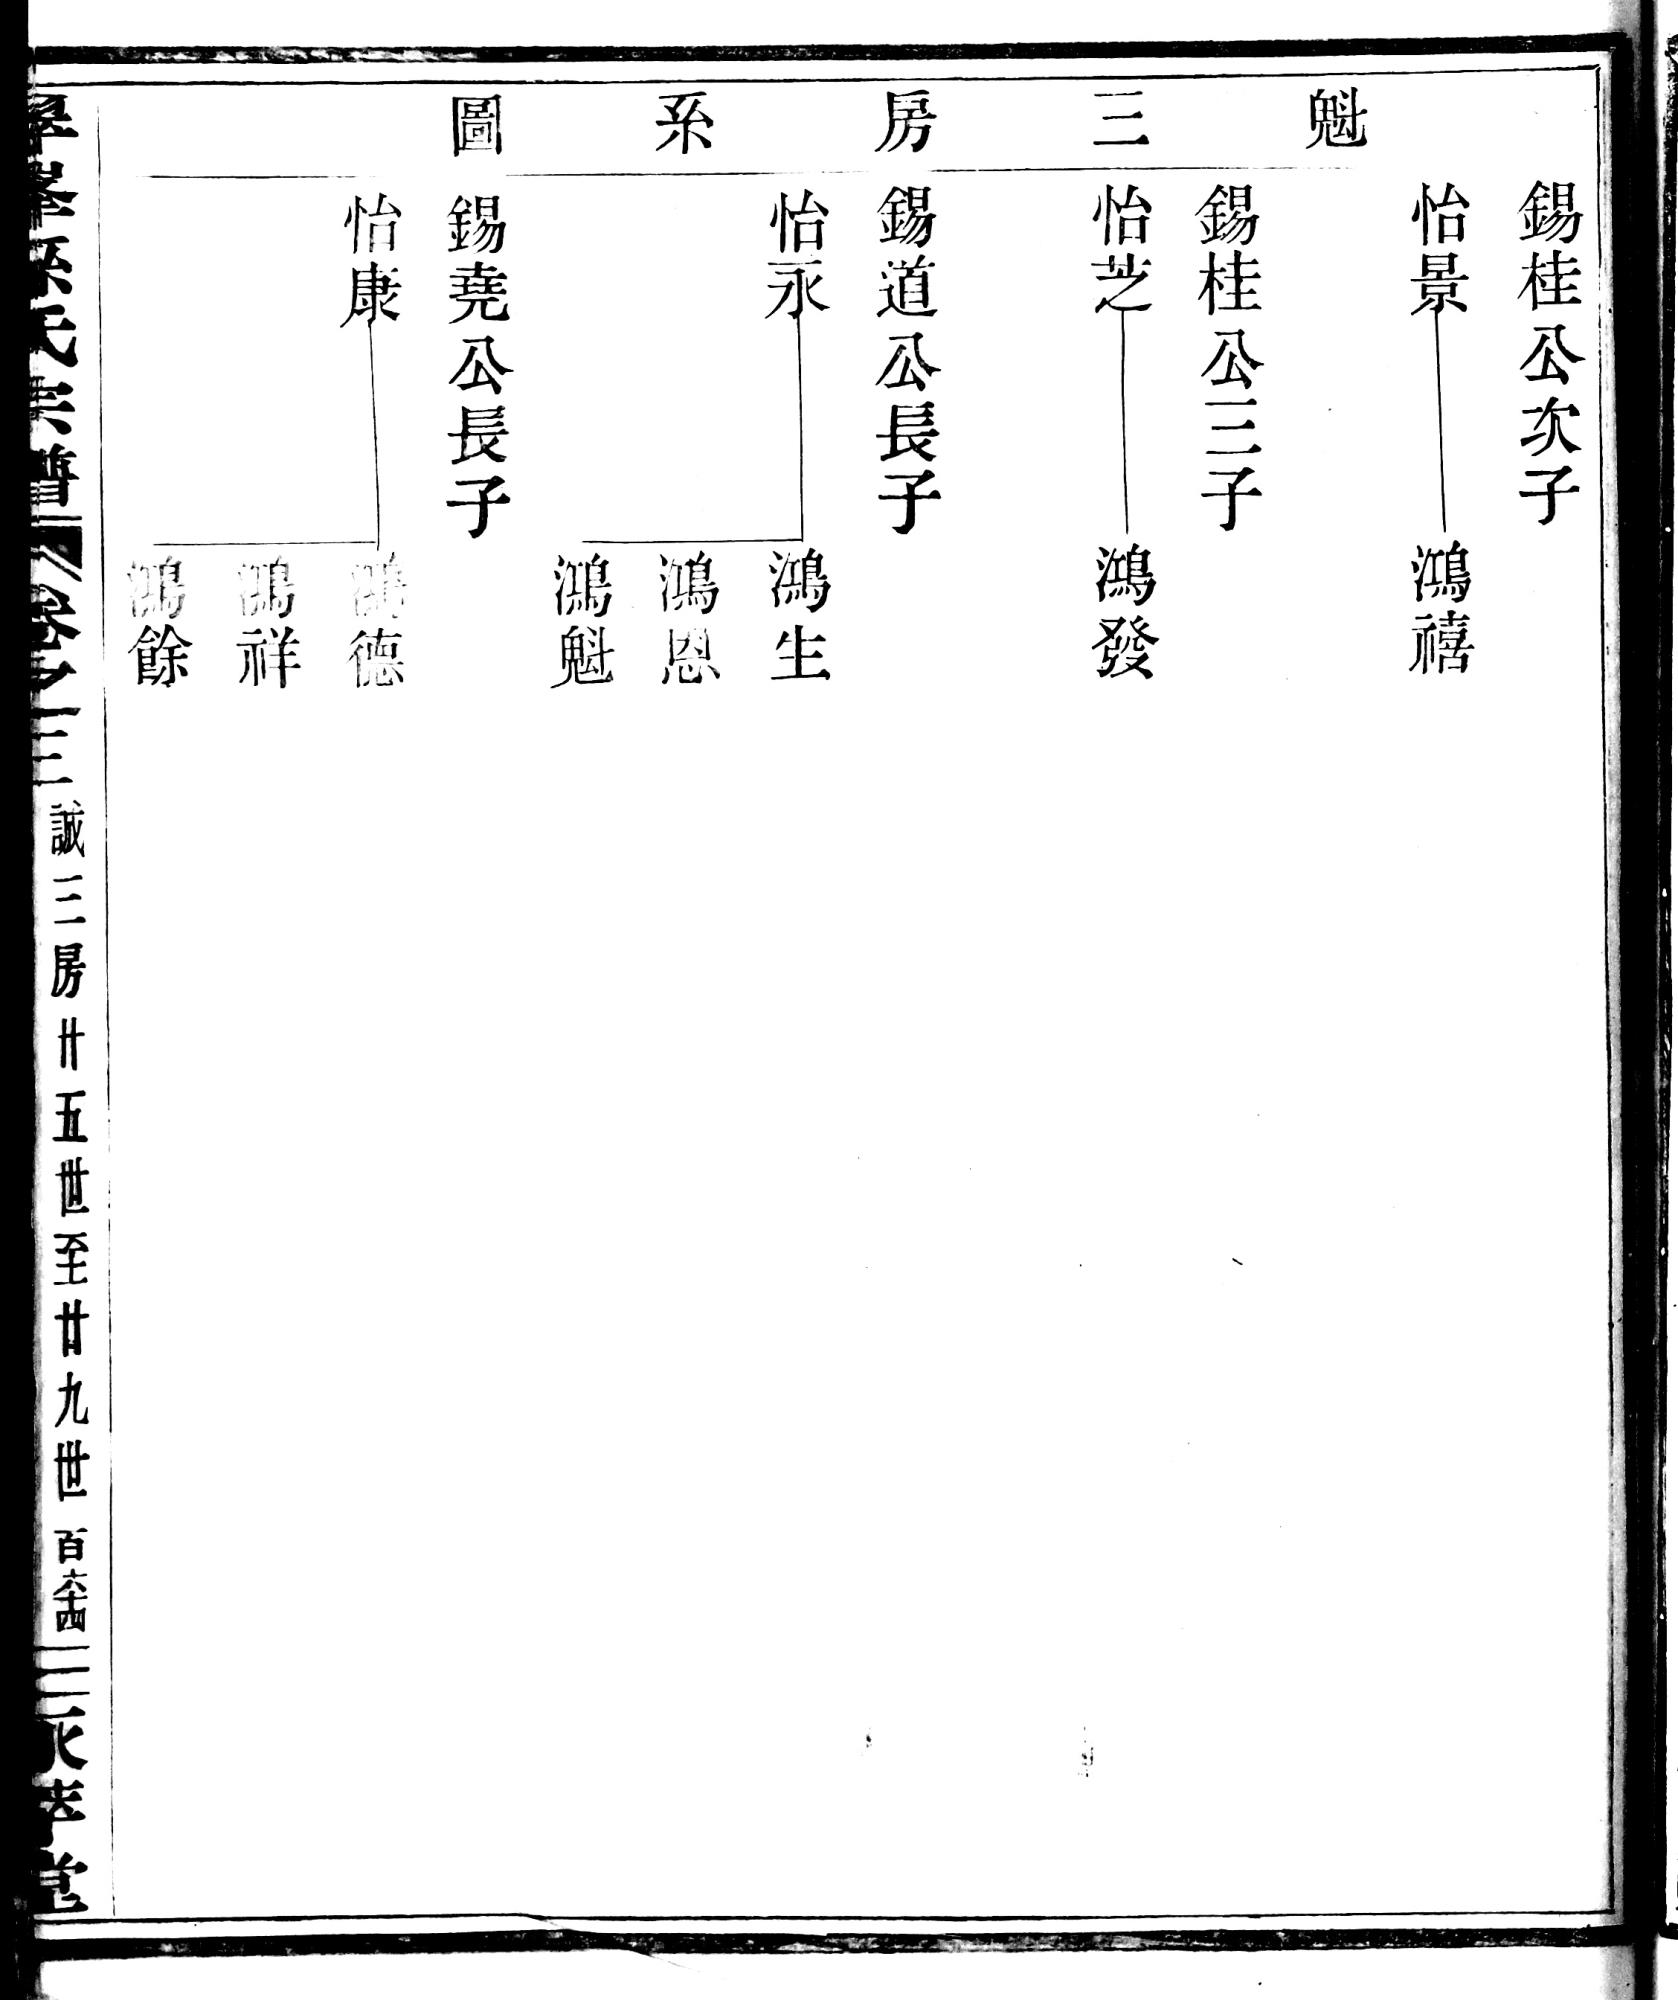 魁三房系圖
錫桂公次子
怡景
鴻禧
錫桂公三子
怡芝
鴻發
錫道公長子
怡永
鴻生
鴻恩
鴻魁
錫堯公長子
怡康
鴻德
鴻祥
鴻餘
孫氏宗譜
卷之三
誠三房廿五世至廿九世
百六十四
堂